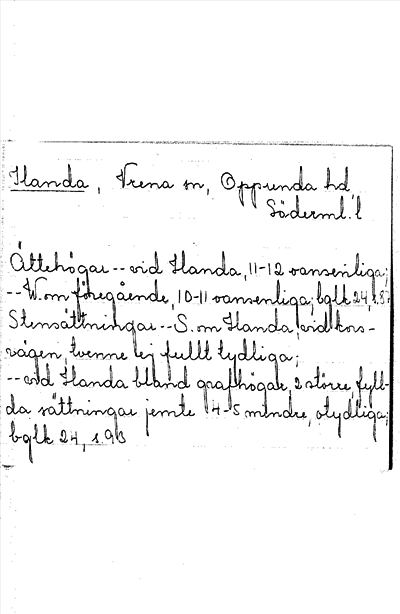 Handa, Vrena sn, Oppunda hd,
Söderml. l
Ättehögar -- vid Handa, 11-12 vansenliga;
-- W. om föregående, 10-11 vansenliga; bglk 24, s. 87
Stensättningar -- S. om Handa, vid kors-
vägen, tvenne ej fullt tydliga;
-- vid Handa bland grafhögar, 2 större, fyll-
da sättningar jemte 4-5 mindre, otydliga;
bglk 24, s. 90